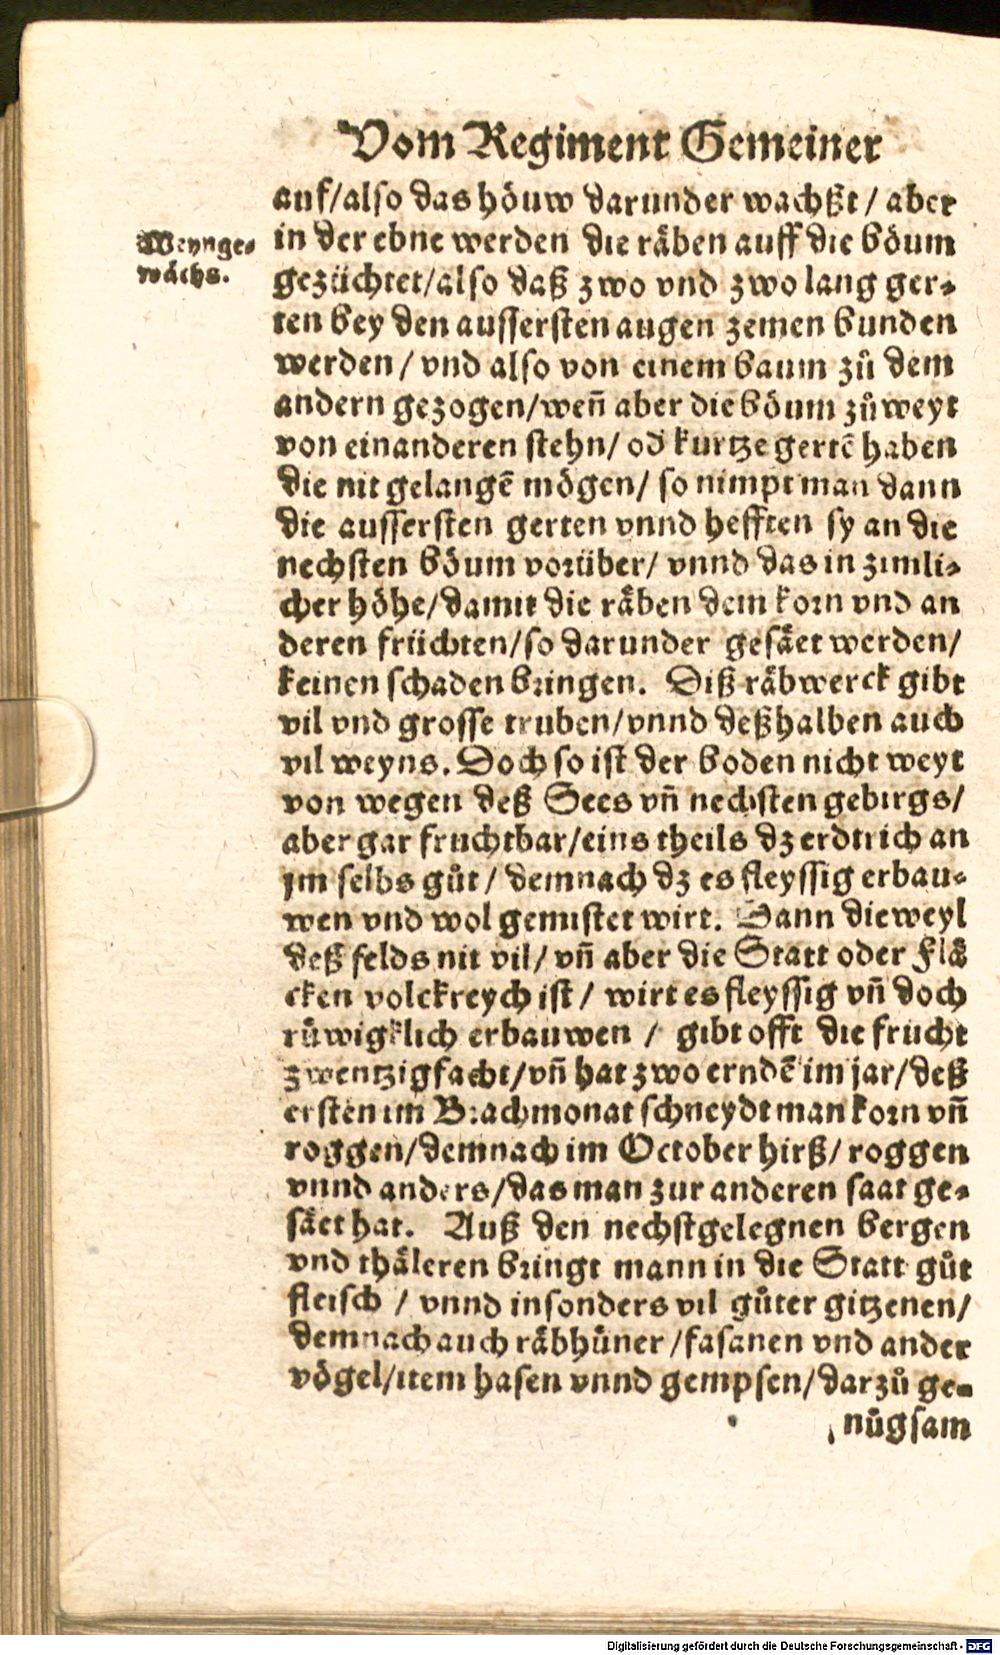 Vom Regiment Gemeiner
auf/also das höuw darunder wachßt/ aber
Weynge-
wächs.
in der ebne werden die räben auff die böum
gezüchtet/also daß zwo vnd zwo lang ger-
ten bey den aussersten augen zemen bunden
werden/ vnd also von einem baum zů dem
andern gezogen/weñ aber die böum zů weyt
von einanderen stehn/ oď kurtze gertẽ haben
die nit gelangẽ mögen/ so nimpt man dann
die aussersten gerten vnnd hefften sy an die
nechsten böum vorüber/ vnnd das in zimli-
cher höhe/damit die räben dem korn vnd an
deren früchten/so darunder gesäet werden/
keinen schaden bringen. Diß räbwerck gibt
vil vnd grosse truben/vnnd deßhalben auch
vil weyns. Doch so ist der boden nicht weyt
von wegen deß Sees vñ nechsten gebirgs/
aber gar fruchtbar/eins theils dz erdtrich an
jm selbs gůt/ demnach dz es fleyssig erbau-
wen vnd wol gemistet wirt. Dann dieweyl
deß felds nit vil/ vñ aber die Statt oder Flä
cken volckreych ist/ wirt es fleyssig vñ doch
rüwigklich erbauwen/ gibt offt die frucht
zwentzigfacht/vñ hat zwo erndẽ im jar/deß
ersten im Brachmonat schneydt man korn vñ
roggen/demnach im October hirß/ roggen
vnnd anders/das man zur anderen saat ge-
säet hat. Auß den nechstgelegnen bergen
vnd thäleren bringt mann in die Statt gůt
fleisch/ vnnd insonders vil gůter gitzenen/
demnach auch räbhüner/fasanen vnd ander
vögel/item hasen vnnd gempsen/darzů ge-
nůgsam
Digitalisierung gefördert durch die Deutsche Forschungsgemeinschaft - DFG